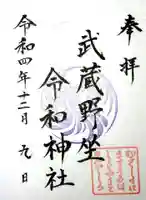 奉拝
武蔵野坐
令和神社
令和四年十二月九日